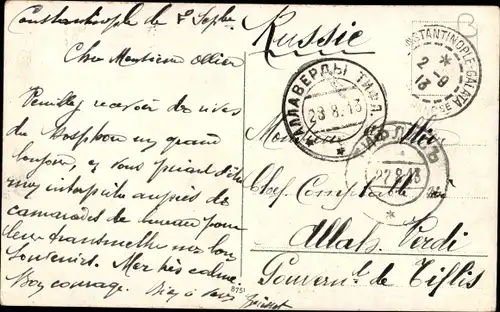 Constantinople le 2 Septbre
Cher Monsieur Ollier
Veuillez recevoir des rives
du Bosphore un grand
bonjour, et vous priant d'être
mon interprète auprès de
camarades de bureau pour
leur transmettre mes bons
souvenirs. Mer très calme.
Bon courage. Bien à vous
Russie
Monsieur Ollier
Chef Comptable
Allah Verdi
Gouvernt de Tiflis
CONSTANTINOPLE-GALATA
2 9
13
АЛЛАВЕРДЫ ТИФЛ.
28.8.13
ТИФЛИСЪ
27.8.13
8751